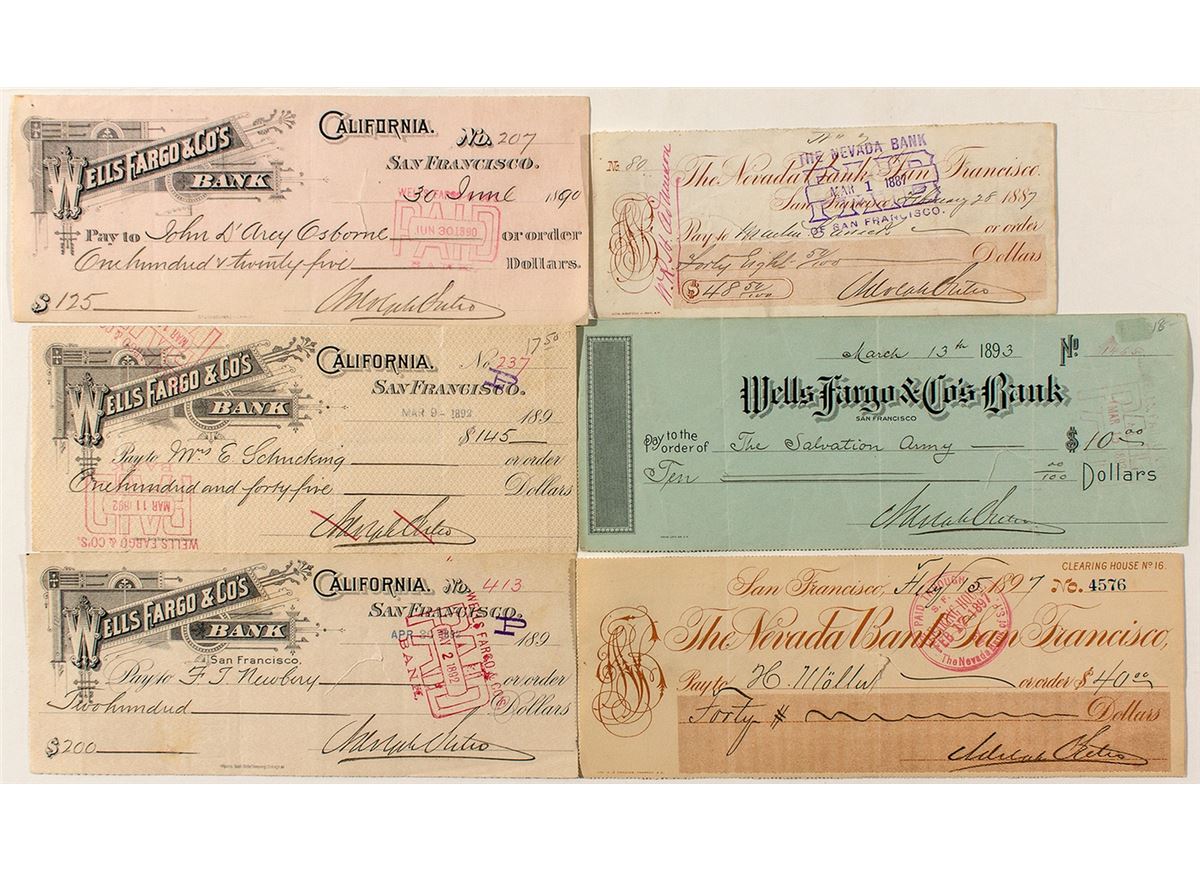 WELLS FARGO & CO'S
BANK
CALIFORNIA. No. 207
SAN FRANCISCO.
30 June 1890
WELLS FARGO
PAID
JUN 30 1890
BANK
Pay to John D'Arcy Osborne or order
One hundred & twenty five Dollars.
$ 125 Adolph Sutro
No. 80
The Nevada Bank of San Francisco.
San Francisco February 28 1887
THE NEVADA BANK
PAID
MAR 1 1887
OF SAN FRANCISCO.
Pay to or order
Forty Eight 50/100 Dollars
$ 48 50/100 Adolph Sutro
WELLS FARGO & CO'S
BANK
CALIFORNIA. No 237
17 50
SAN FRANCISCO.
MAR 9 - 1892 189
$ 145
Pay to Mrs E. Schucking or order
One hundred and forty five Dollars
Adolph Sutro
WELLS FARGO & CO'S.
PAID
MAR 11 1892
BANK
March 13th 1893 No.
18-
Wells Fargo & Co's Bank
SAN FRANCISCO
Pay to the order of The Salvation Army $ 10.00
Ten 00/100 Dollars
Adolph Sutro
WELLS FARGO & CO'S
BANK
CALIFORNIA. No. 413
SAN FRANCISCO.
APR 30 1892 189
WELLS FARGO & CO'S
PAID
MAY 2 1892
BANK
San Francisco,
Pay to F J Newbery or order
Two hundred Dollars
$ 200 Adolph Sutro
CLEARING HOUSE No 16.
San Francisco, Feby 5 1897 No. 4576
The Nevada Bank of San Francisco,
PAID THROUGH
FEB 1897
The Nevada Bank of S.F.
Pay to H. Möller or order $ 40 00
Forty # Dollars
Adolph Sutro